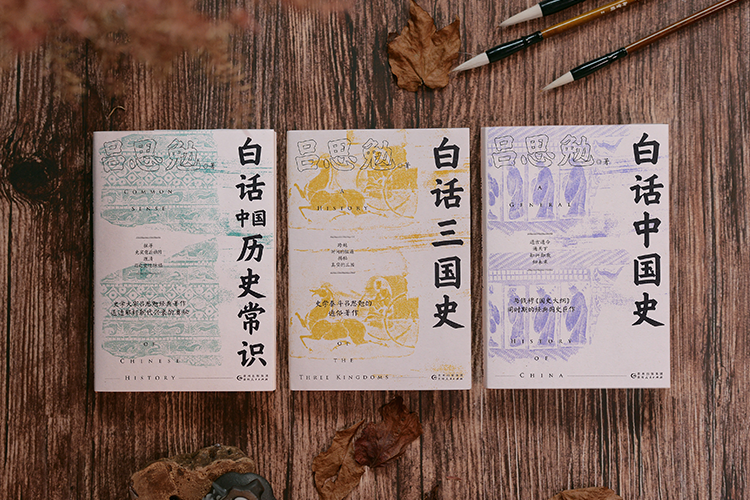 吕思勉 著
白话
中国
历史常识
COMMON
SENSE
史学大家吕思勉经典著作
OF
CHINESE
HISTORY
吕思勉 著
白话三国史
A
HISTORY
史学泰斗吕思勉的
通俗著作
OF
THE
THREE KINGDOMS
吕思勉 著
白话中国史
A
GENERAL
与钱穆《国史大纲》
同时期的经典国史巨作
HISTORY
OF
CHINA